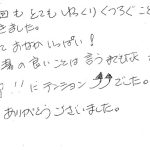 回も とても ゆっくりくつろぐこと
きました。
て おなかいっぱい!
湯の良いことは言うまでもなく
!! にテンション⤴⤴でした。
ありがとうございました。